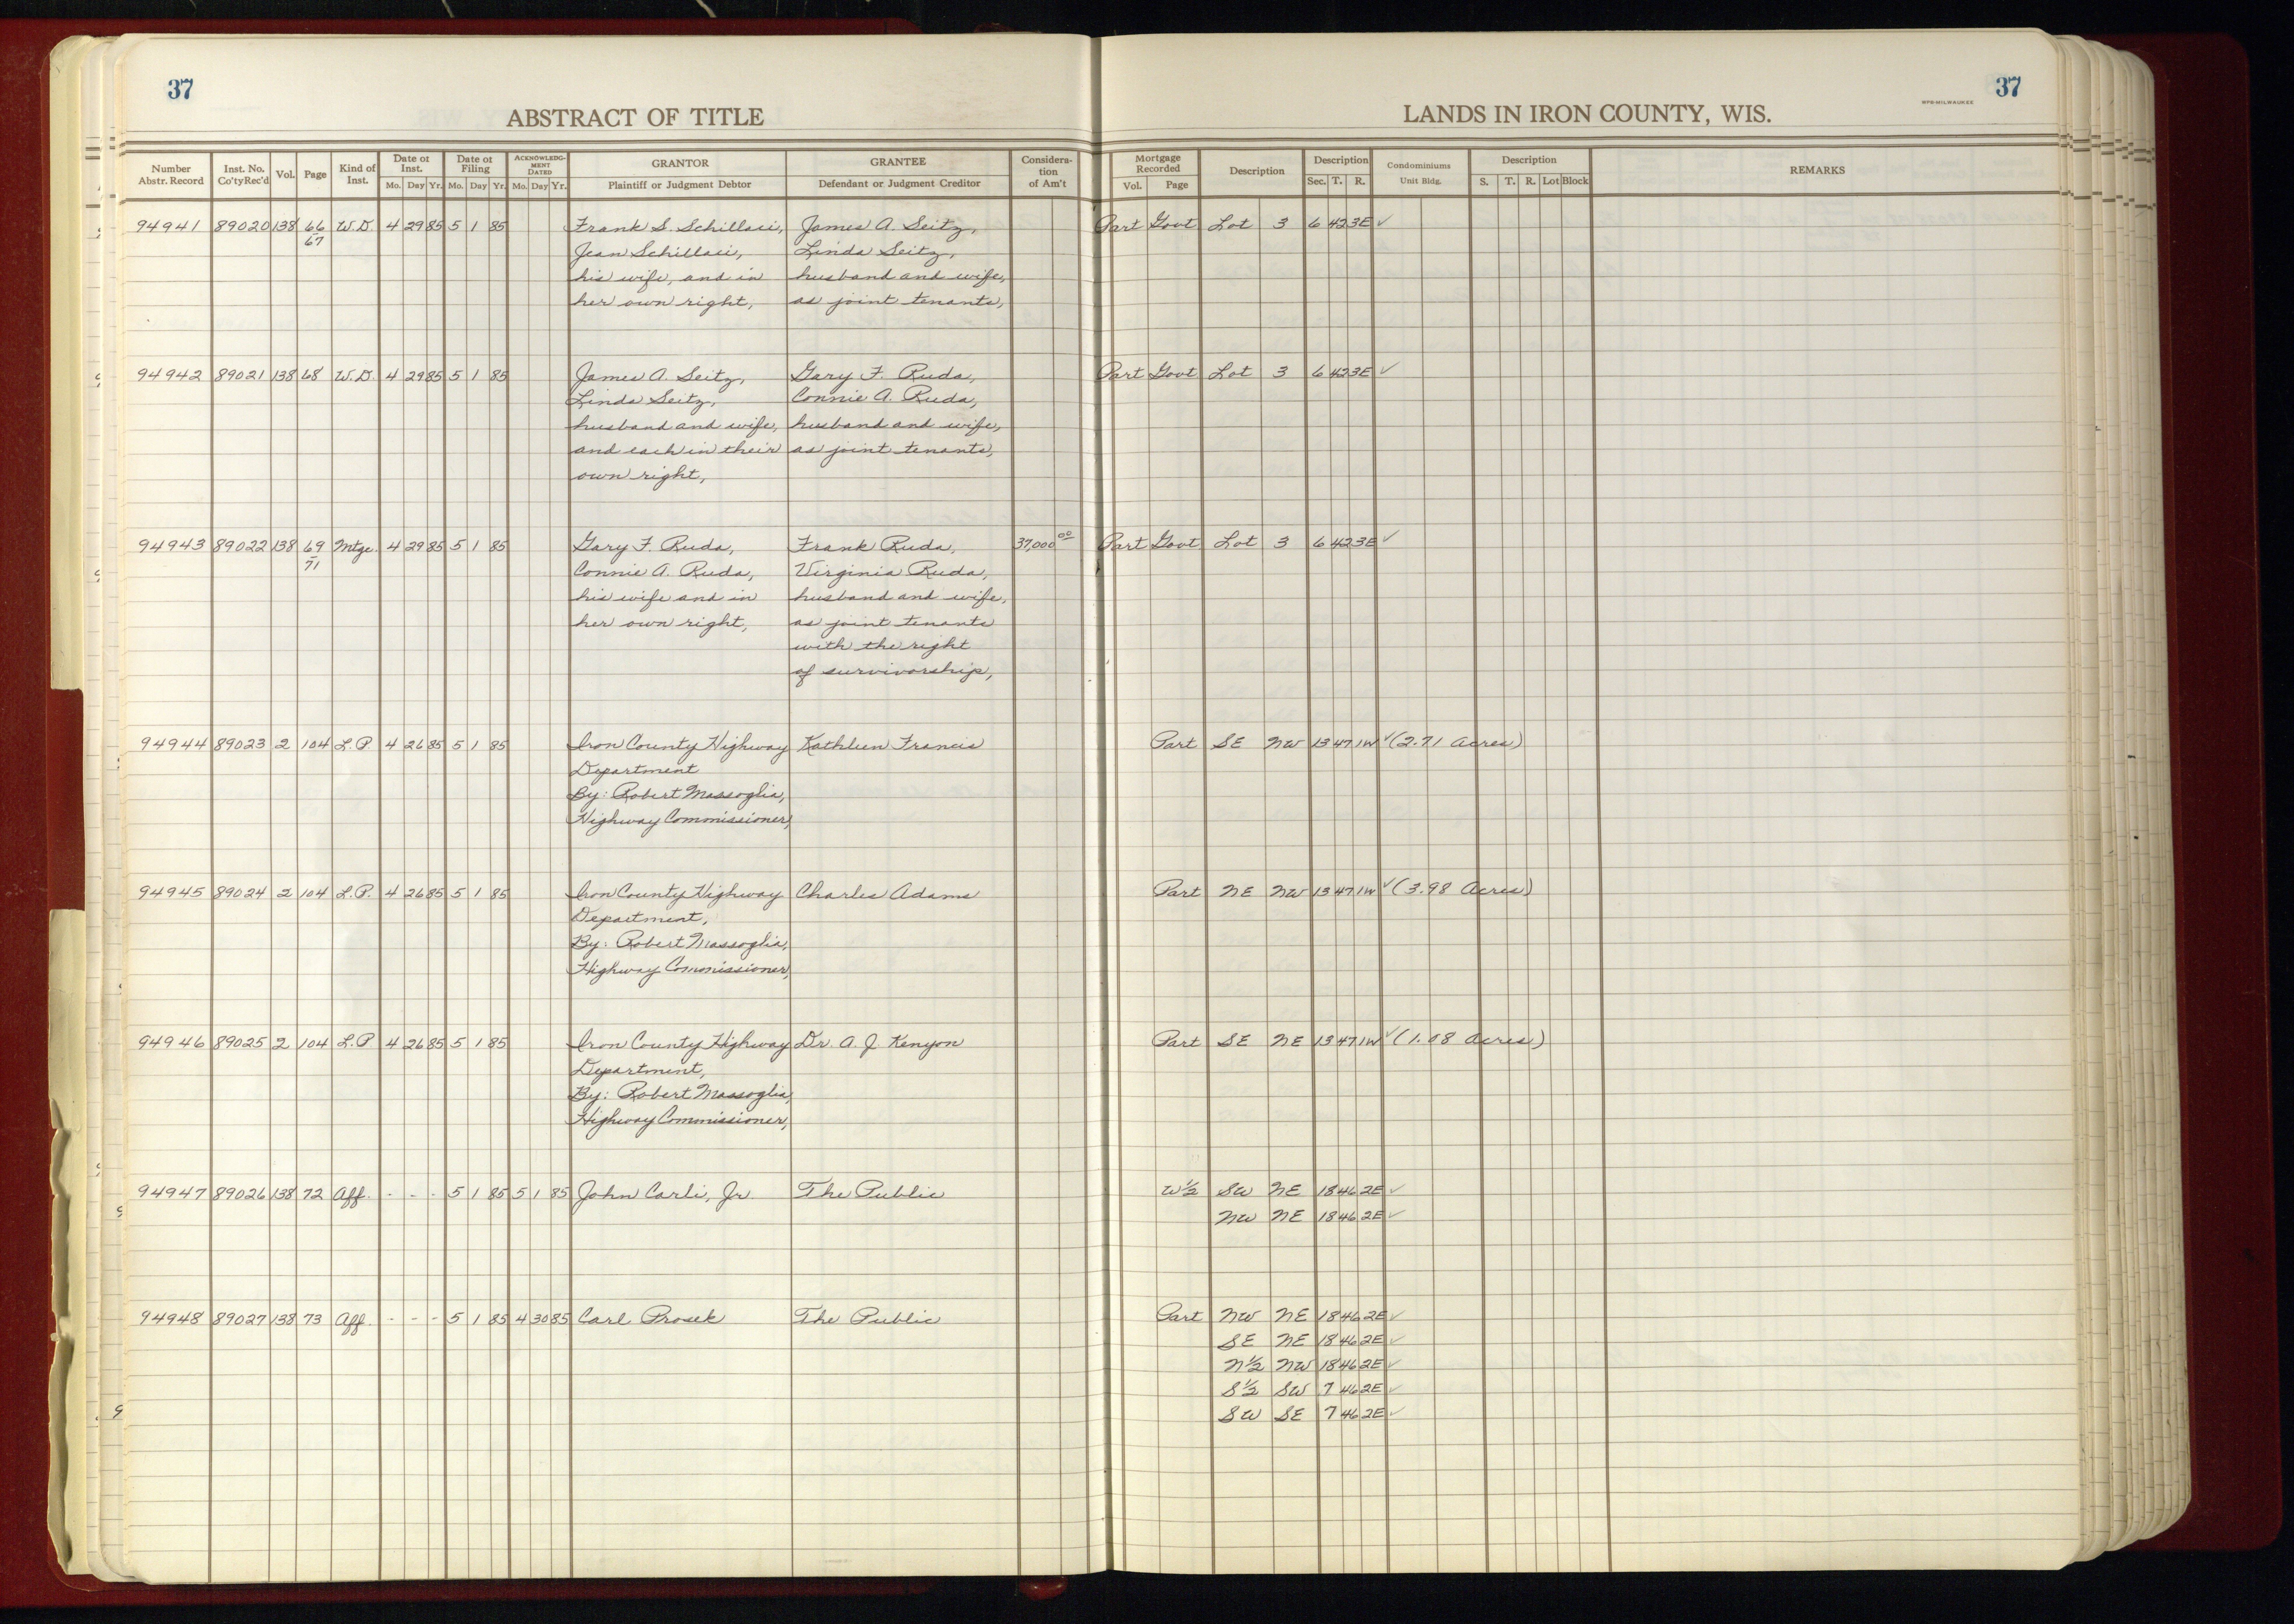 37
37
WPB-MILWAUKEE
ABSTRACT OF TITLE
LANDS IN IRON COUNTY, WIS.
Number Abstr. Record | Inst. No. Co'ty Rec'd | Vol. | Page | Kind of Inst. | Date of Inst. Mo. Day Yr. | Date of Filing Mo. Day Yr. | ACKNOWLEDGMENT DATED Mo. Day Yr. | GRANTOR Plaintiff or Judgment Debtor | GRANTEE Defendant or Judgment Creditor | Consideration of Am't | Mortgage Recorded Vol. Page | Description | Description Sec. T. R. | Condominiums Unit Bldg. | Description S. T. R. Lot Block | REMARKS
94941 89020 138 66 W.D. 4 29 85 5 1 85 Frank S. Schillaci, James A. Seitz, Part Govt Lot 3 6 42 3E ✓
67 Jean Schillaci, Linda Seitz,
his wife, and in husband and wife,
her own right, as joint tenants,
94942 89021 138 68 W.D. 4 29 85 5 1 85 James A. Seitz, Gary F. Ruda, Part Govt Lot 3 6 42 3E ✓
Linda Seitz, Connie A. Ruda,
husband and wife, husband and wife,
and each in their as joint tenants,
own right,
94943 89022 138 69 Mtge. 4 29 85 5 1 85 Gary F. Ruda, Frank Ruda, 37,000 00 Part Govt Lot 3 6 42 3E ✓
71 Connie A. Ruda, Virginia Ruda,
his wife and in husband and wife,
her own right, as joint tenants
with the right
of survivorship,
94944 89023 2 104 L.P. 4 26 85 5 1 85 Iron County Highway Kathleen Francis Part SE NW 13 47 1W ✓ (2.71 Acres)
Department
By: Robert Massoglia,
Highway Commissioner,
94945 89024 2 104 L.P. 4 26 85 5 1 85 Iron County Highway Charles Adams Part NE NW 13 47 1W ✓ (3.98 Acres)
Department,
By: Robert Massoglia,
Highway Commissioner,
94946 89025 2 104 L.P 4 26 85 5 1 85 Iron County Highway Dr. A. J. Kenyon Part SE NE 13 47 1W ✓ (1.08 Acres)
Department,
By: Robert Massoglia,
Highway Commissioner,
94947 89026 138 72 Aff. - - - 5 1 85 5 1 85 John Carli, Jr. The Public W½ SW NE 18 46 2E ✓
NW NE 18 46 2E ✓
94948 89027 138 73 Aff. - - - 5 1 85 4 30 85 Carl Prosek The Public Part NW NE 18 46 2E ✓
SE NE 18 46 2E ✓
N½ NW 18 46 2E ✓
S½ SW 7 46 2E ✓
SW SE 7 46 2E ✓